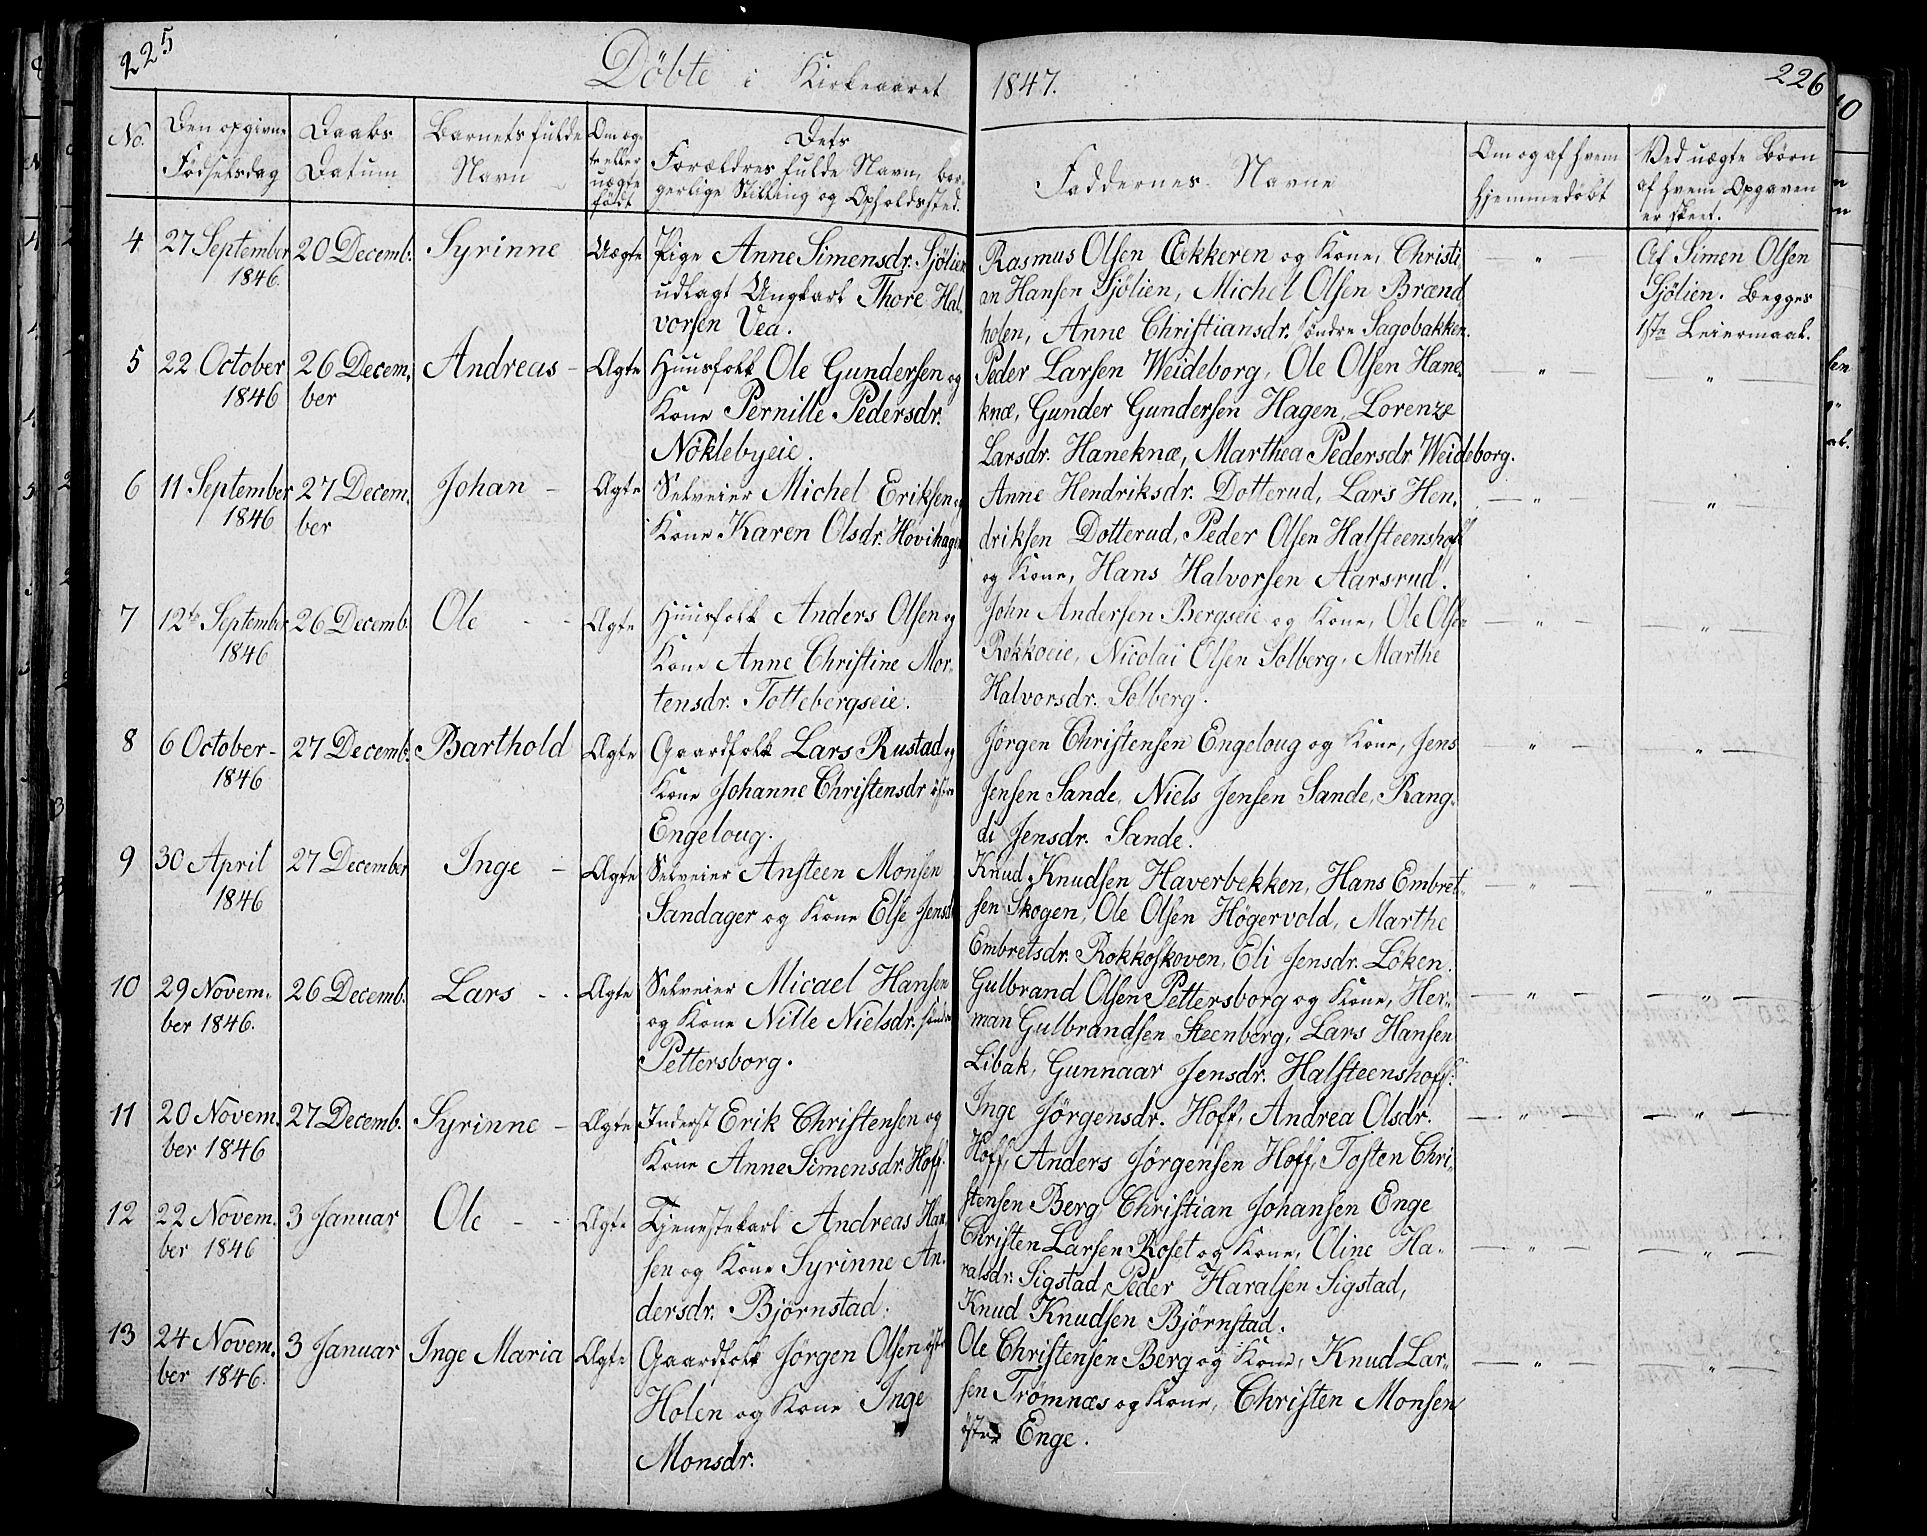 225
Döbte i Kirkeaaret 1847.
226
No.
Den opgivne
Födselsdag
Daabs
Datum
Barnets fulde
Navn
Om æg-
te eller
uægte
födt
Dets
Forældres fulde Navn, bor-
gerlige Stilling og Opholdssted.
Faddernes Navne
Om og af hvem
hjemmedöbt
Ved uægte Börn
af hvem Opgaven
er skeet.
4
27 September
1846.
20 Decemb.
Syrinne
Uægte
Pige Anne Simensdr. Sjölien
udlagt Ungkarl Thore Hal-
vorsen Vea.
Rasmus Olsen Eckeren og Kone, Christi-
an Hansen Sjölien, Michel Olsen Brænd
holen, Anne Christiansdr. söndre Sagobakken.
— " —
Af Simen Olsen
Sjölien. Begges
1ste Leiermaal.
5
22 October
1846
26 Decem-
ber
Andreas -
Ægte
Huusfolk Ole Gundersen og
Kone Pernille Pedersdr.
Nöklebyeie.
Peder Larsen Weideborg, Ole Olsen Hane-
knæ, Gunder Gundersen Hagen, Lorenze
Larsdr. Haneknæ, Marthea Pedersdr Weideborg.
— " —
— " —
6
11 September
1846
27 Decem-
ber
Johan -
Ægte
Selveier Michel Eriksen og
Kone Karen Olsdr. Hovihagen
Anne Hendriksdr. Dotterud, Lars Hen-
driksen Dotterud, Peder Olsen Halsteenshoff
og Kone, Hans Halvorsen Aarsrud.
— " —
"
7
12te September
1846
26 Decemb.
Ole - -
Ægte
Huusfolk Anders Olsen og
Kone Anne Christine Mor-
tensdr. Tottebergseie.
John Andersen Bergseie og Kone, Ole Olsen
Rokkoeie, Nicolai Olsen Solberg, Marthe
Halvorsdr. Solberg.
— " —
— " —
8
6 October -
1846
27 Decemb.
Barthold
Ægte
Gaardfolk Lars Rustad og
Kone Johanne Christensdr östre
Engeloug.
Jörgen Christensen Engeloug og Kone, Jens
Jensen Sande, Niels Jensen Sande, Rang-
di Jensdr. Sande.
" —
" —
9
30 April
1846
27 December
Inge -
Ægte
Selveier Ansteen Monsen
Sandager og Kone Else Jensdr
Knud Knudsen Haverbekken, Hans Embret-
sen Skogen, Ole Olsen Högervold, Marthe
Embretsdr. Rokkoskoven, Eli Jensdr. Löken.
— " —
— " —
10
29 Novem-
ber 1846.
26 Decemb.
Lars - -
Ægte
Selveier Micael Hansen
og Kone Nille Nielsdr. söndre
Pettersborg.
Gulbrand Olsen Pettersborg og Kone, Her-
man Gulbrandsen Steenberg, Lars Hansen
Libak, Gunnaar Jensdr. Halsteenshoff.
— " —
— " —
11
20 Novem-
ber 1846
27 Decemb.
Syrinne -
Ægte
Inderst Erik Christensen og
Kone Anne Simensdr. Hoff.
Inge Jörgensdr. Hoff, Andrea Olsdr.
Hoff, Anders Jörgensen Hoff, Tosten Chri-
stensen Berg, Christian Johansen Enge
— " —
— " —
12
22 Novem-
ber 1846
3 Januar
Ole - -
Ægte
Tjenestekarl Andreas Han-
sen og Kone Syrinne An-
dersdr. Björnstad.
Christen Larsen Roset og Kone, Oline Ha-
ralsdr. Sigstad, Peder Haralsen Sigstad,
Knud Knudsen Björnstad.
— " —
— " —
13
24 Novem-
ber 1846.
3 Januar
Inge Maria
Ægte
Gaardfolk Jörgen Olsen östre
Holen og Kone Inge
Monsdr.
Ole Christensen Berg og Kone, Knud Lar-
sen Tromnæs og Kone, Christen Monsen
östre Enge.
— " —
— " —